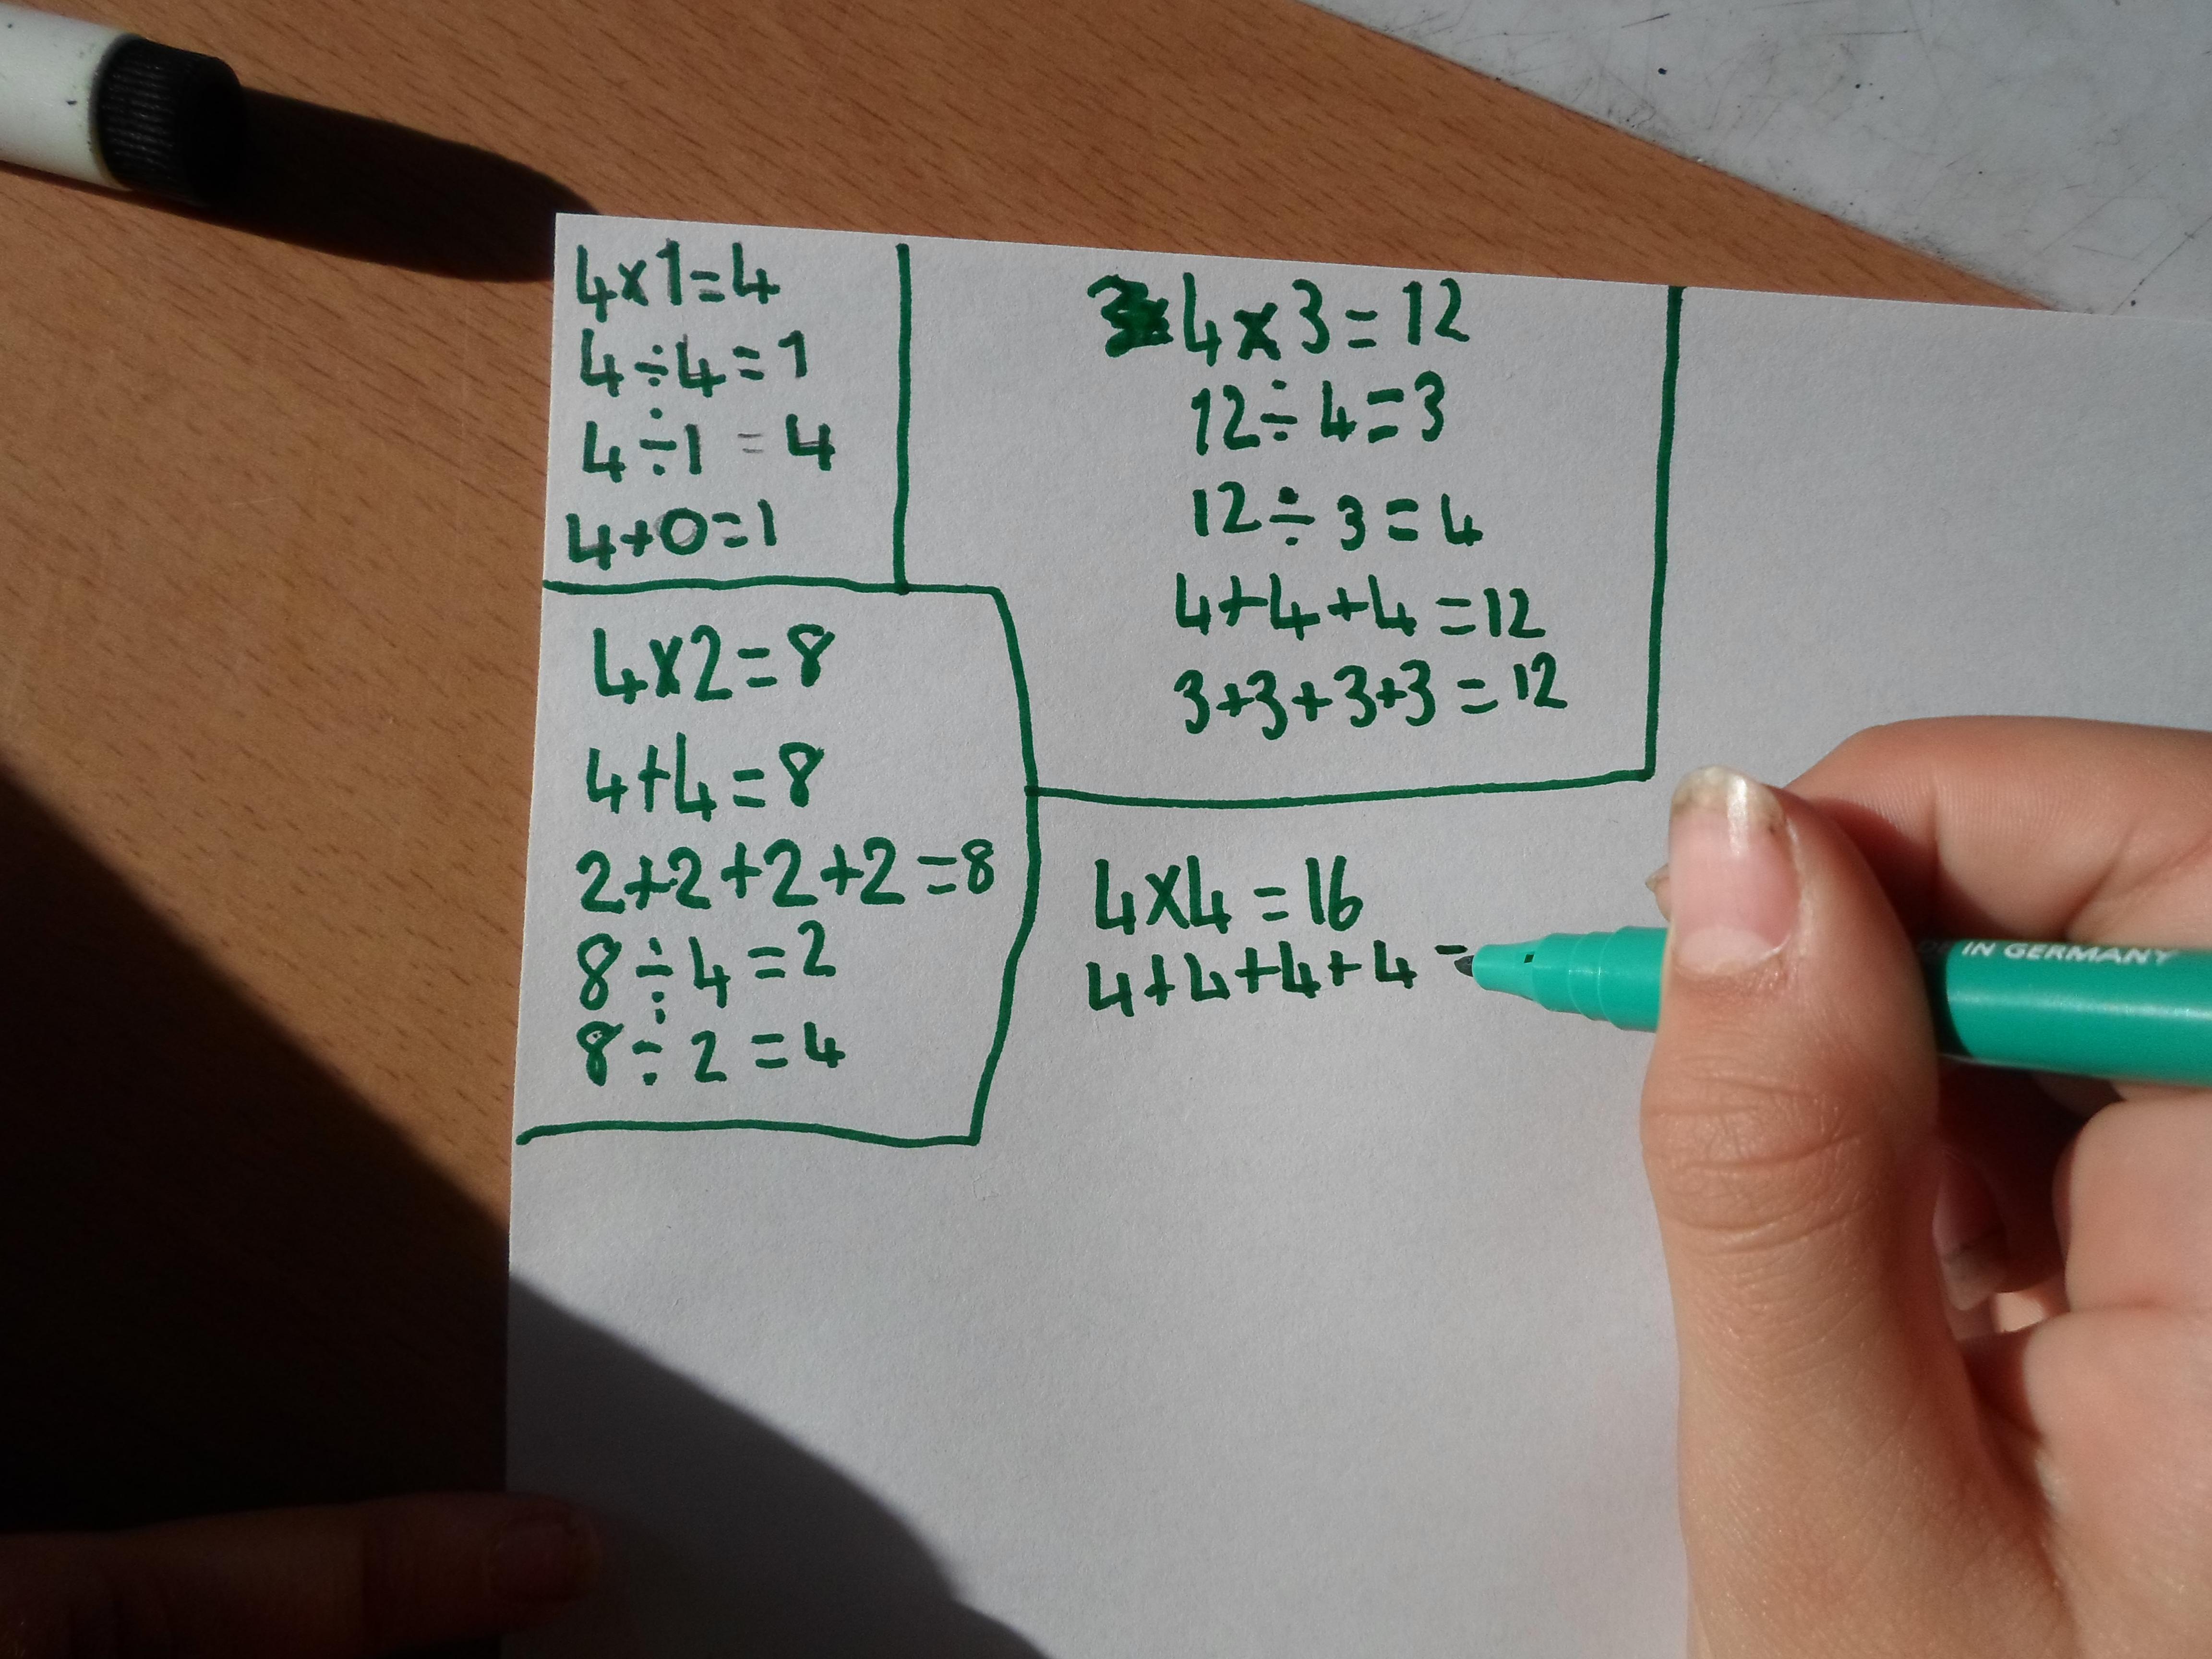 4×1=4
4÷4=1
4÷1=4
4+0=1
4×2=8
4+4=8
2+2+2+2=8
8÷4=2
8÷2=4
4×3=12
12÷4=3
12÷3=4
4+4+4=12
3+3+3+3=12
4×4=16
4+4+4+4 -
IN GERMANY